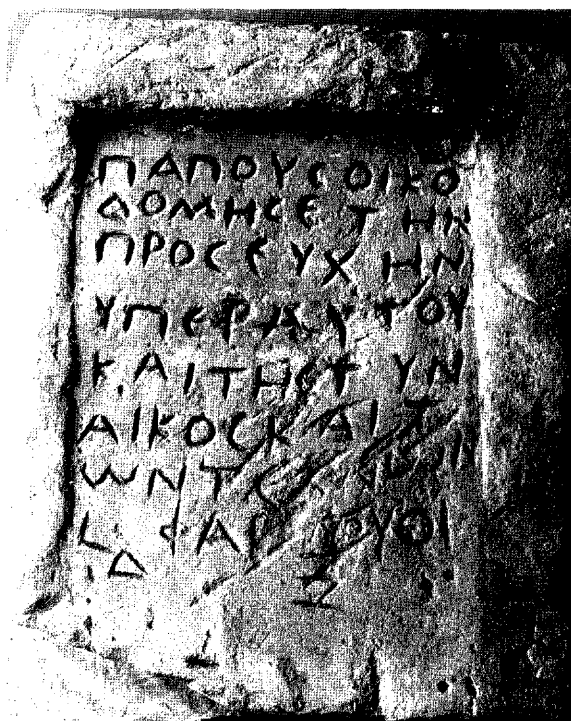 ΠΑΠΟΥϹΟΙΚΟ
ΔΟΜΗϹΕΤΗΝ
ΠΡΟϹΕΥΧΗΝ
ΥΠΕΡΑΥΤΟΥ
ΚΑΙΤΗϹΓΥΝ
ΑΙΚΟϹΚΑΙΤ
ѠΝΤΕΚΝѠΝ
L ΦΑΡΜΟΥΘΙ
Δ Ζ